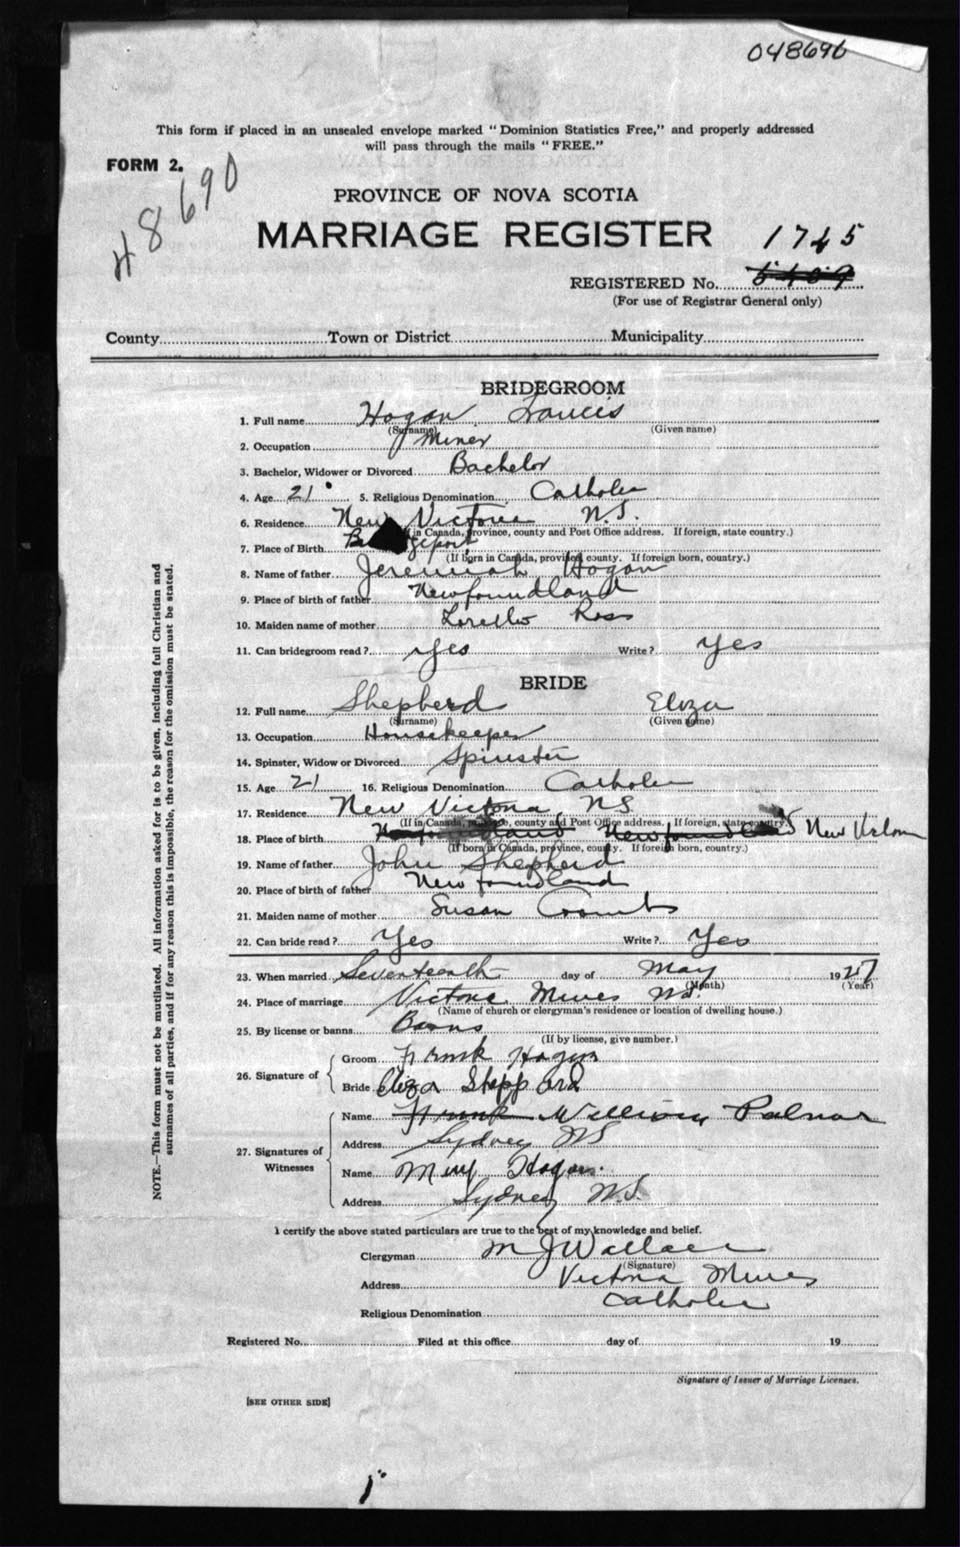 048690
This form if placed in an unsealed envelope marked "Dominion Statistics Free," and properly addressed
will pass through the mails "FREE."
FORM 2.
48690
PROVINCE OF NOVA SCOTIA
MARRIAGE REGISTER
1745
REGISTERED No.
(For use of Registrar General only)
County Town or District Municipality
BRIDEGROOM
1. Full name Hogan Francis
(Surname) (Given name)
2. Occupation Miner
3. Bachelor, Widower or Divorced Bachelor
4. Age 21 5. Religious Denomination Catholic
6. Residence New Victoria N.S.
(If in Canada, province, county and Post Office address. If foreign, state country.)
7. Place of Birth Bridgeport
(If born in Canada, province, county. If foreign born, country.)
8. Name of father Jeremiah Hogan
9. Place of birth of father Newfoundland
10. Maiden name of mother Ross
11. Can bridegroom read? Yes Write? Yes
BRIDE
12. Full name Shepherd Eliza
(Surname) (Given name)
13. Occupation Housekeeper
14. Spinster, Widow or Divorced Spinster
15. Age 21 16. Religious Denomination Catholic
17. Residence New Victoria NS
(If in Canada, province, county and Post Office address. If foreign, state country.)
18. Place of birth Newfoundland Newfoundland New
(If born in Canada, province, county. If foreign born, country.)
19. Name of father John Shepherd
20. Place of birth of father Newfoundland
21. Maiden name of mother Susan Coombs
22. Can bride read? Yes Write? Yes
23. When married Seventeenth day of May 1927
(Month) (Year)
24. Place of marriage Victoria Mines N.S.
(Name of church or clergyman's residence or location of dwelling house.)
25. By license or banns Banns
(If by license, give number.)
26. Signature of
Groom Frank Hogan
Bride Eliza Sheppard
27. Signatures of Witnesses
Name Frank William Palmer
Address Sydney NS
Name Mary Hogan
Address Sydney N.S.
I certify the above stated particulars are true to the best of my knowledge and belief.
Clergyman M J Wallace
(Signature)
Address Victoria Mines
Religious Denomination Catholic
Registered No. Filed at this office day of 19
Signature of Issuer of Marriage Licenses.
[SEE OTHER SIDE]
NOTE.—This form must not be mutilated. All information asked for is to be given, including full Christian and
surnames of all parties, and if for any reason this is impossible, the reason for the omission must be stated.